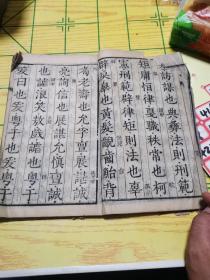 訪謀也典彝法則刑範
矩庸恆律戛職秩常也柯
憲刑範辟律矩則法也辜
辟戾辠也黃髮齯齒鮐背
耇老壽也允孚亶展諶誠
亮詢信也展諶允慎亶誠
也謔浪笑敖戲謔也粵于
爰曰也爰粵于